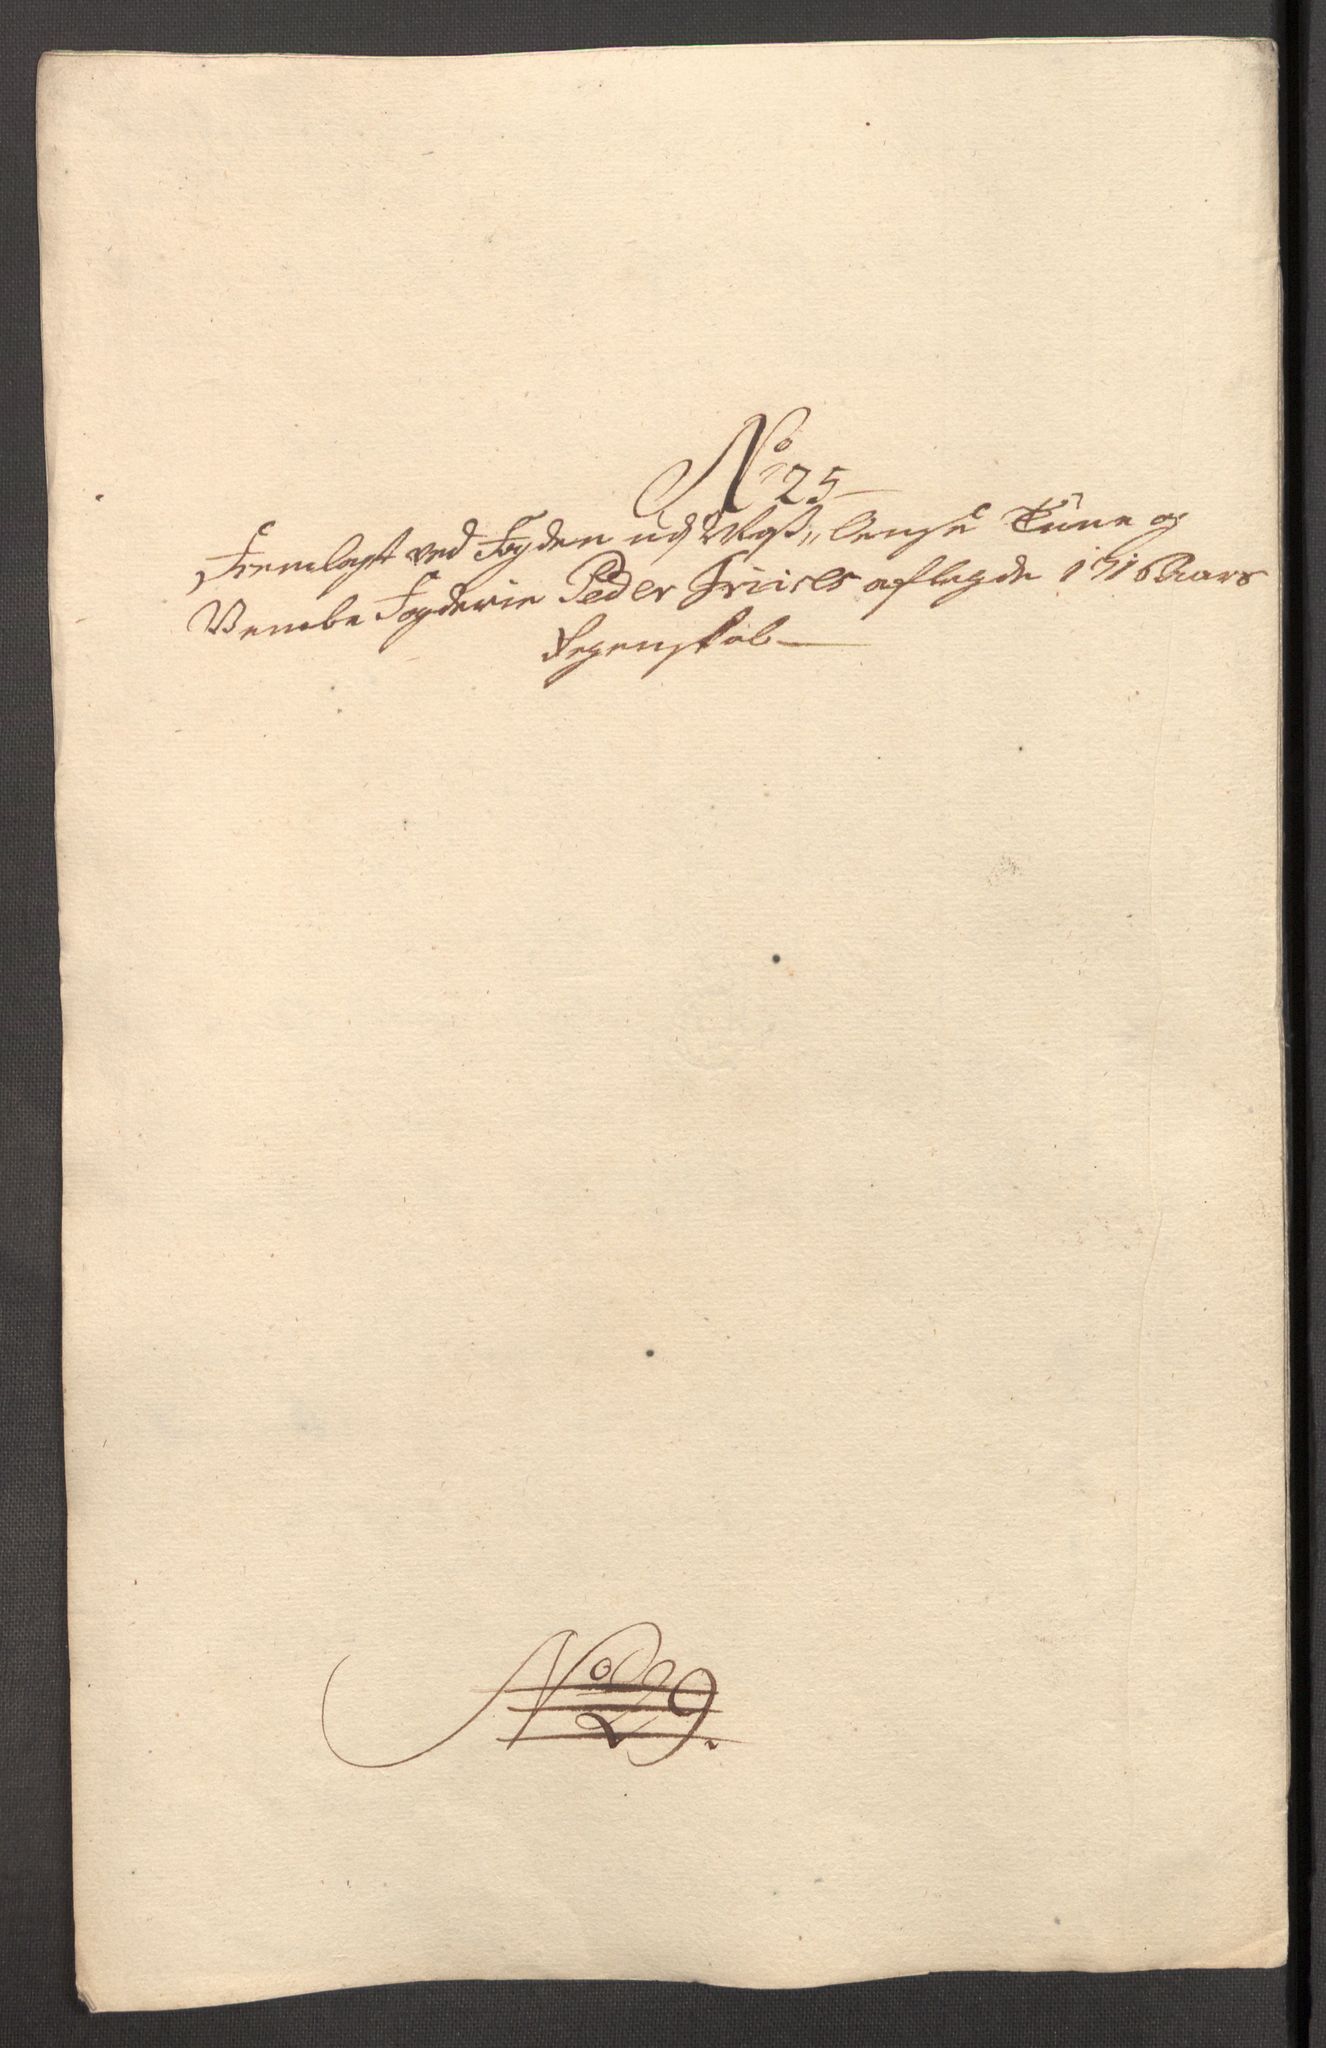 No 25
Fremlagt ved Fogden udj Moss,, Ongsè Tüne og
Vembe Fogderie Peder Friises aflegde 1716 Aars
Regenskab
No 29.